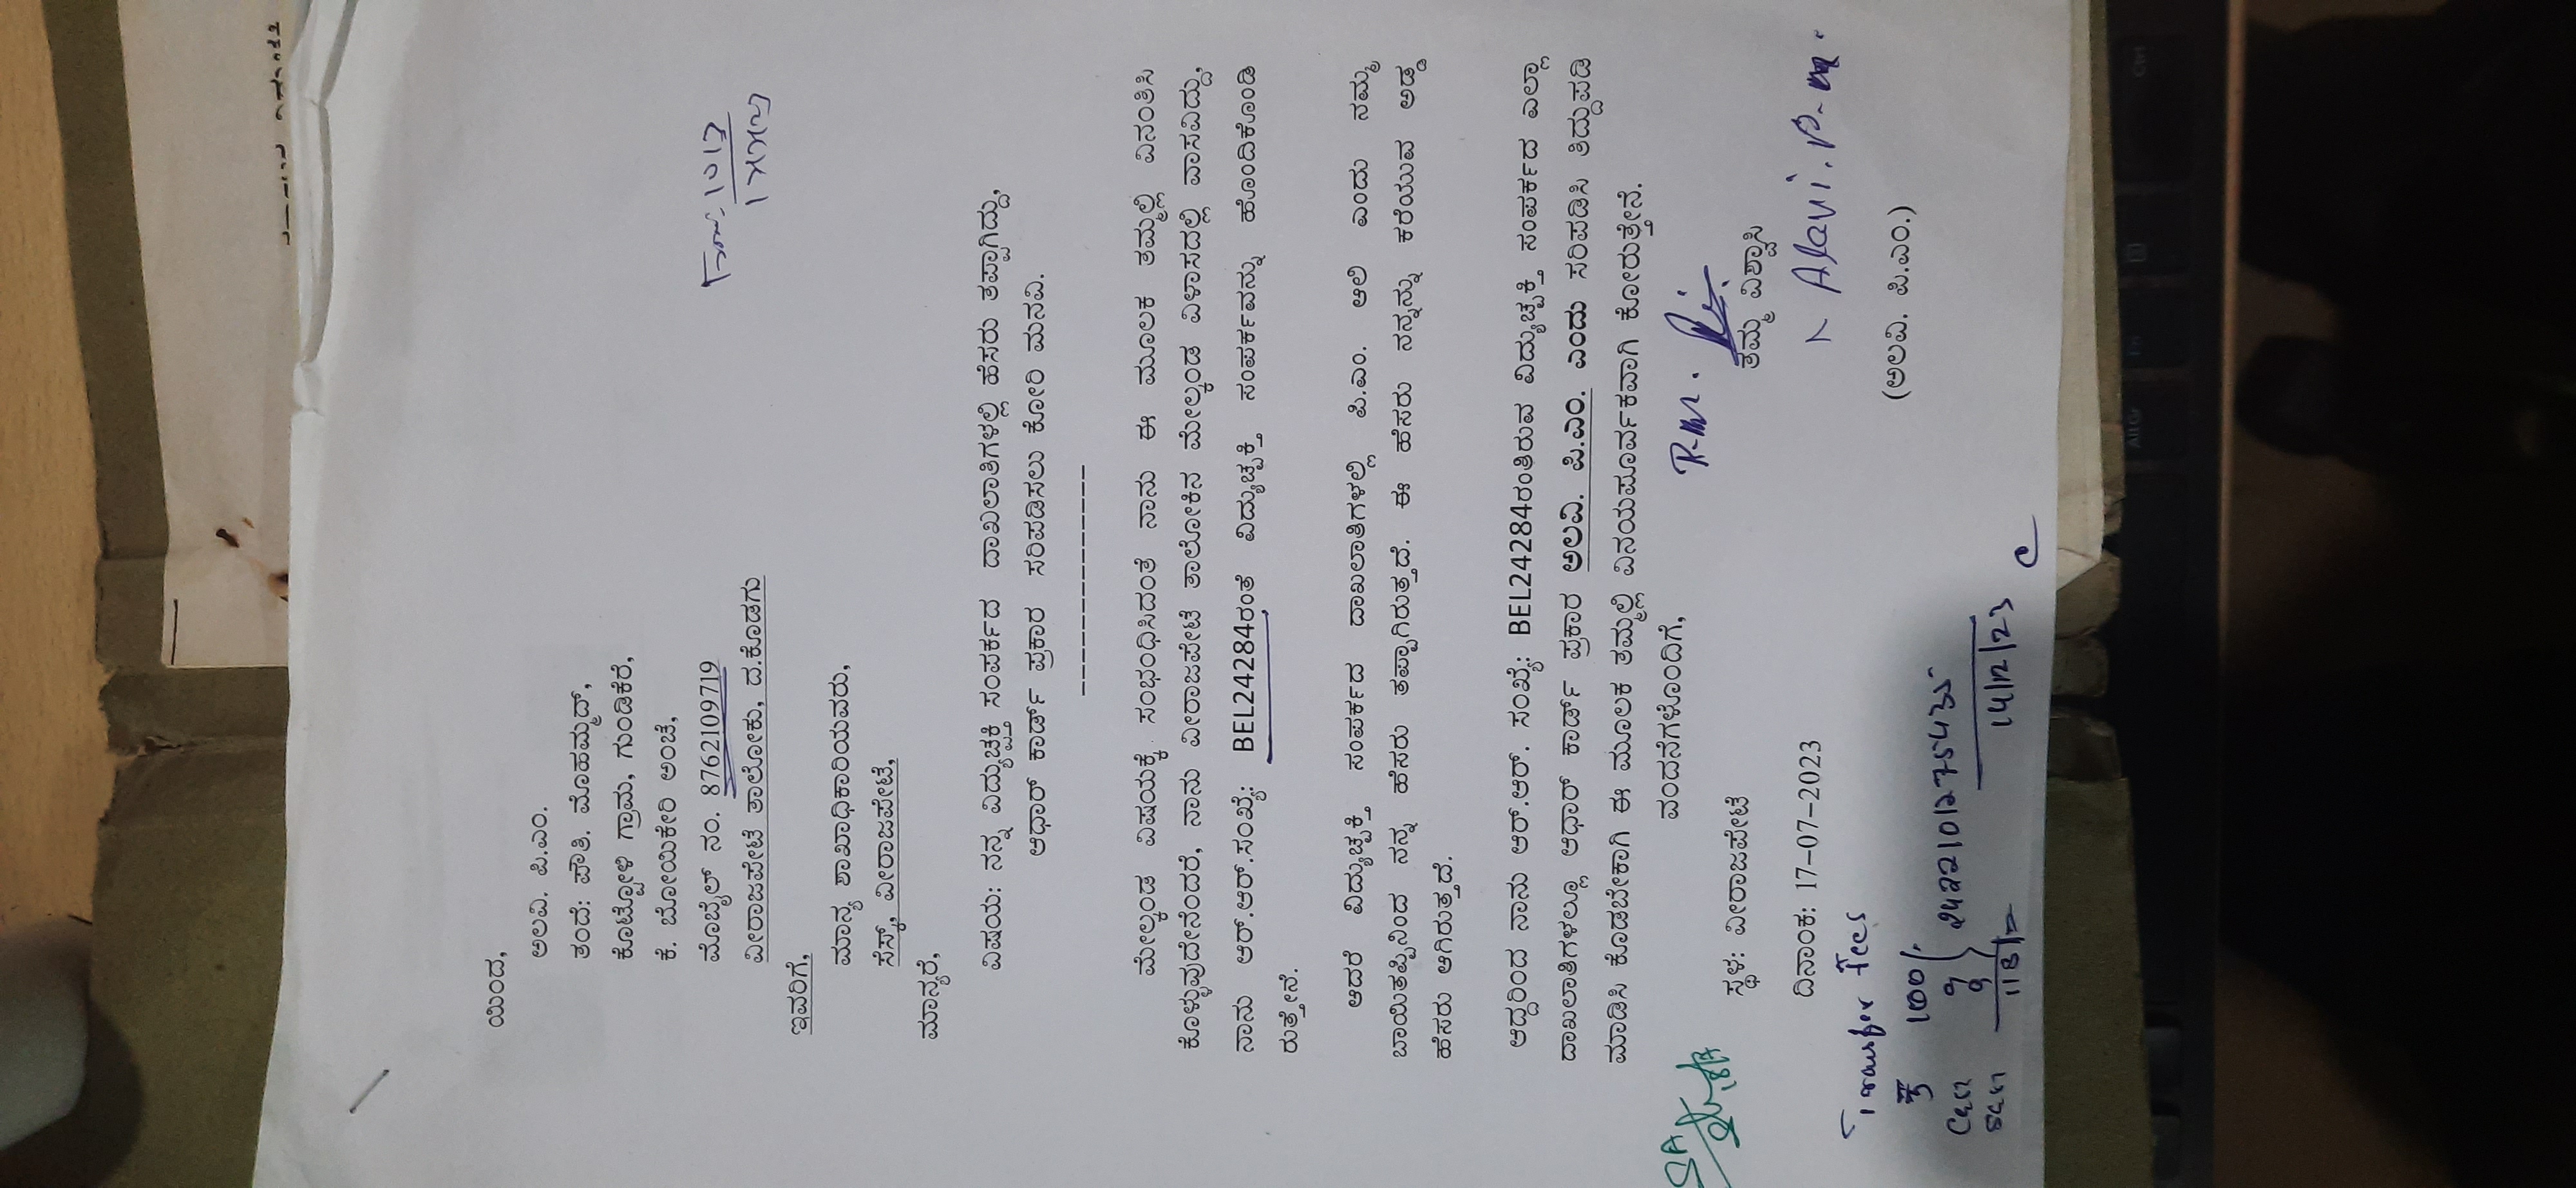 ಯಿಂದ,
ಅಲವಿ. ಪಿ.ಎಂ.
ತಂದೆ: ಪೌತಿ. ಮೊಹಮ್ಮದ್,
ಕೊಟ್ಟೋಳಿ ಗ್ರಾಮ, ಗುಂಡಿಕೆರೆ,
ಕೆ. ಬೋಯಿಕೇರಿ ಅಂಚೆ,
ಮೊಬೈಲ್ ನಂ. 8762109719
ವೀರಾಜಪೇಟೆ ತಾಲೋಕು, ದ.ಕೊಡಗು
ಇವರಿಗೆ,
ಮಾನ್ಯ ಶಾಖಾಧಿಕಾರಿಯವರು,
ಸೆಸ್ಕ್, ವೀರಾಜಪೇಟೆ,
ಮಾನ್ಯರೆ,
ವಿಷಯ: ನನ್ನ ವಿದ್ಯುಚ್ಚಕ್ತಿ ಸಂಪರ್ಕದ ದಾಖಲಾತಿಗಳಲ್ಲಿ ಹೆಸರು ತಪ್ಪಾಗಿದ್ದು,
ಆಧಾರ್ ಕಾರ್ಡ್ ಪ್ರಕಾರ ಸರಿಪಡಿಸಲು ಕೋರಿ ಮನವಿ.
--------------
ಮೇಲ್ಕಂಡ ವಿಷಯಕ್ಕೆ ಸಂಭಂಧಿಸಿದಂತೆ ನಾನು ಈ ಮೂಲಕ ತಮ್ಮಲ್ಲಿ ವಿನಂತಿಸಿ
ಕೊಳ್ಳುವುದೇನೆಂದರೆ, ನಾನು ವೀರಾಜಪೇಟೆ ತಾಲೋಕಿನ ಮೇಲ್ಕಂಡ ವಿಳಾಸದಲ್ಲಿ ವಾಸವಿದ್ದು,
ನಾನು ಆರ್.ಆರ್.ಸಂಖ್ಯೆ: BEL24284ರಂತೆ ವಿದ್ಯುಚ್ಚಕ್ತಿ ಸಂಪರ್ಕವನ್ನು ಹೊಂದಿಕೊಂಡಿ
ರುತ್ತೇನೆ.
ಆದರೆ ವಿದ್ಯುಚ್ಚಕ್ತಿ ಸಂಪರ್ಕದ ದಾಖಲಾತಿಗಳಲ್ಲಿ ಪಿ.ಎಂ. ಆಲಿ ಎಂದು ನಮ್ಮ
ಬಾಯಿತಪ್ಪಿನಿಂದ ನನ್ನ ಹೆಸರು ತಪ್ಪಾಗಿರುತ್ತದೆ. ಈ ಹೆಸರು ನನ್ನನ್ನು ಕರೆಯುವ ಅಡ್ಡ
ಹೆಸರು ಆಗಿರುತ್ತದೆ.
ಆದ್ದರಿಂದ ನಾನು ಆರ್.ಆರ್. ಸಂಖ್ಯೆ: BEL24284ರಂತಿರುವ ವಿದ್ಯುಚ್ಚಕ್ತಿ ಸಂಪರ್ಕದ ಎಲ್ಲಾ
ದಾಖಲಾತಿಗಳಲ್ಲೂ ಆಧಾರ್ ಕಾರ್ಡ್ ಪ್ರಕಾರ ಅಲವಿ. ಪಿ.ಎಂ. ಎಂದು ಸರಿಪಡಿಸಿ ತಿದ್ದುಪಡಿ
ಮಾಡಿಸಿ ಕೊಡಬೇಕಾಗಿ ಈ ಮೂಲಕ ತಮ್ಮಲ್ಲಿ ವಿನಯಪೂರ್ವಕವಾಗಿ ಕೋರುತ್ತೇನೆ.
ವಂದನೆಗಳೊಂದಿಗೆ,
ಸ್ಥಳ: ವೀರಾಜಪೇಟೆ
ತಮ್ಮ ವಿಶ್ವಾಸಿ
ದಿನಾಂಕ: 17-07-2023
Alavi. P.m.
(ಅಲವಿ. ಪಿ.ಎಂ.)
Transfer fees
100/.
9
9
118/=
14/12/23